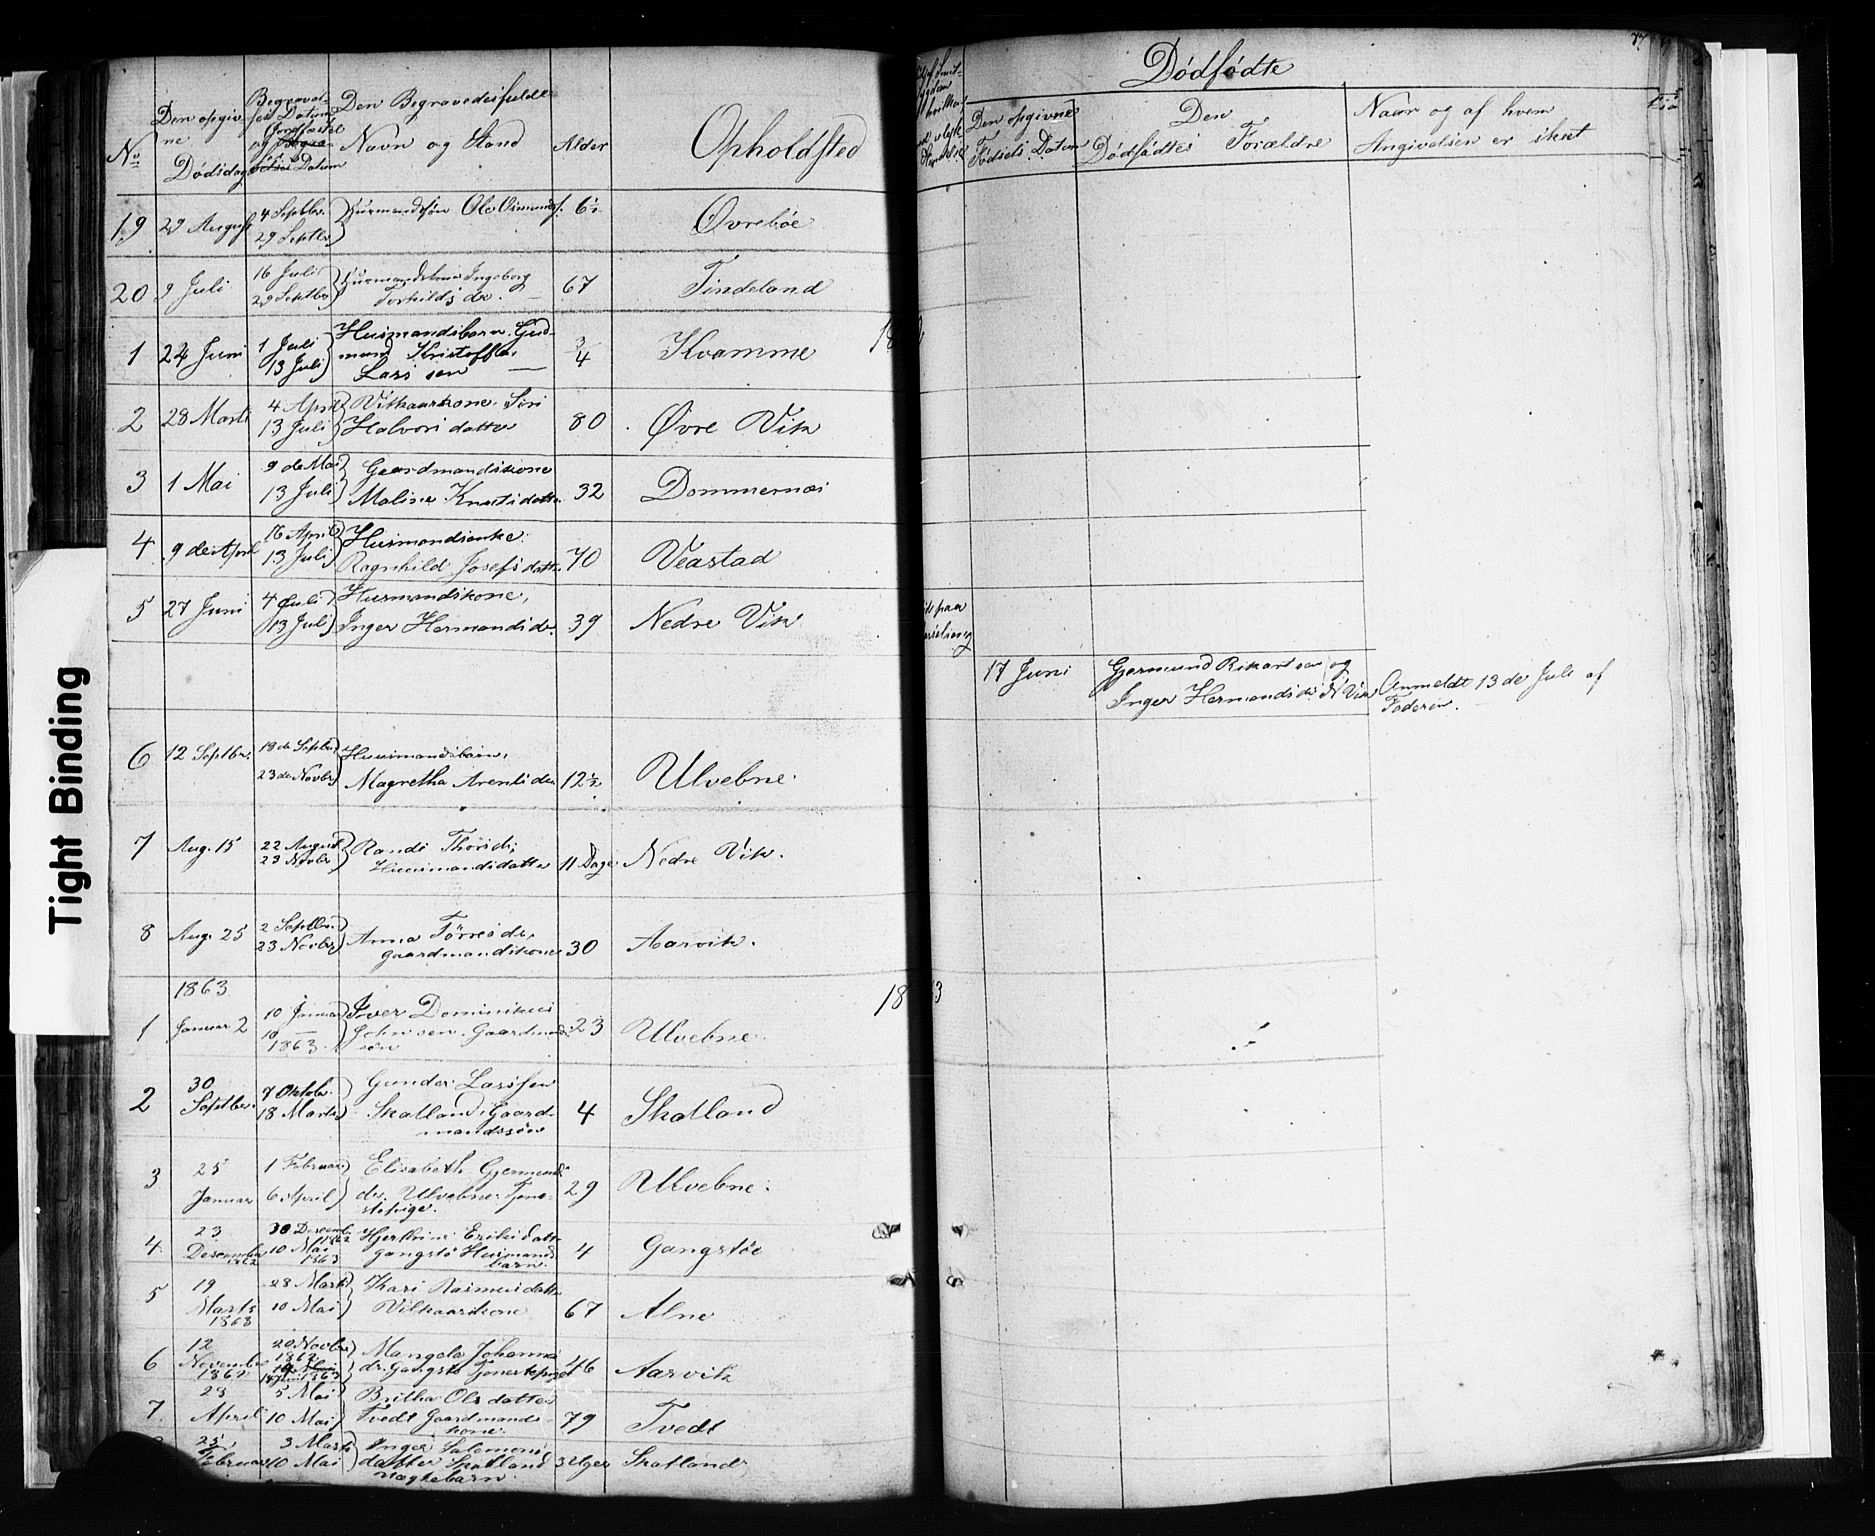 Tight Binding
No
Den opgivne Dødsdag
Den Begravedes fulde
Navn og Stand
Alder
Opholdsted
Dødfødte
77
Den opgivne
Fødsels Datum
Den
Dødfødtes Forældre
Naar og af hvem
Angivelsen er skeet
19 29 August 4 Septbr. 29 Septbr Ole 6½ Øvrebøe
20 9 Juli 16 Juli 29 Septbr Huusmandskone Ingeborg
Torkilds dr. 67 Tindeland
1 24 Juni 1 Juli 13 Juli Husmandsbarn Gud-
mund Kristoffer
Lars sen 3/4 Kvamme
2 28 Marts 4 April Vilkaarkone Siri
13 Juli Halvors datter 80 Øvre Vik
3 1 Mai 9 de Mai Gaardmandskone
13 Juli Maline Knuts datter 32 Dommersnæs
4 9 de April 16 April Husmandsenke
13 Juli Ragnhild Josefs datter 70 Veastad
5 27 Juni 4 Juli Husmandskone,
13 Juli Inger Hermands dr. 39 Nedre Vik
17 Juni Gjermund Rikartsen og
Inger Hermands dr. N Vik
Anmeldt 13 de Juli af
Faderen.
6 12 Septbr. 18 de Septbr Huusmandsbarn,
23 de Novbr Magretha Arents dr 12½ Ulvebne.
7 Aug. 15 22 August Randi Thores dr,
23 Novbr Huusmandsdatter 11 Dage Nedre Vik.
8 Aug. 25 2 Septbr. Anna Tørres dr,
23 Novbr gaardmandskone 30 Aarvik.
1863
1863
1 Januar 2 10 Januar Iver Dominikus
10 — Johnsen. Gaardmands
1863. søn 23 Ulvebne.
2 30 Septbr. 7 Oktobr. Gunder Larssen
18 Marts Skatland, Gaard-
mandssøn 4 Skatland
3 25 Januar 1 Februar Elisabeth Gjermunds
6 April dr. Ulvebne. Tjene-
stepige. 29 Ulvebne.
4 23 Desember 1862 30 Desemb. 1862 Eriksdatter
10 Mai 1863 gangstø Husmands
barn. 4 Gangstøe
5 19 Marts 1863 28 Marts Kari Rasmusdatter
10 Mai Vilkaarskone 67 Alne
6 12 November 1862 20 Novbr 1862 Mangela Johannes
dr. Gangstø Tjenestepige 46 Aarvik
7. 23 April 5 Mai Britha Olsdatter
10 Mai Tvedt Gaardmands-
kone. 79 Tvedt
25 Februar 3 Marts Inger Salomons
10 Mai datter Skatland 3 Uger Skatland